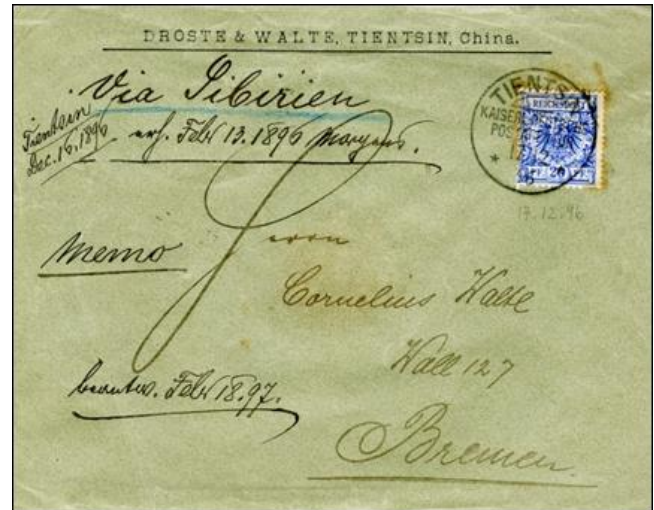 DROSTE & WALTE, TIENTSIN, China.
Via Sibirien
Tientsin
Dec. 16. 1896
erh. Febr 13. 1896 Morgens.
TIENTSIN
KAISERL. DEUTSCHE
POST
17/12
REICHSPOST
PF 20 PF
17.12.96
Memo
Herrn
Cornelius Walte
Wall 127
beantw. Febr 18. 97.
Bremen.